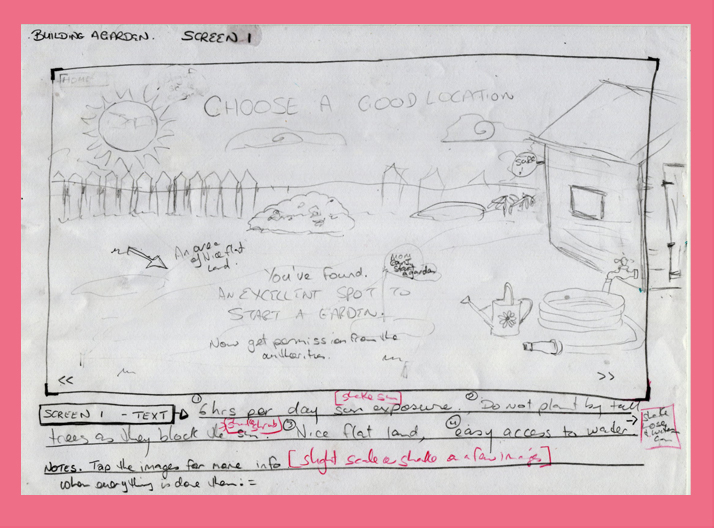 BUILDING A GARDEN. SCREEN 1
HOME
CHOOSE A GOOD LOCATION
SAFE
An area
of Nice flat
land.
You've found.
AN EXCELLENT SPOT TO
START A GARDEN.
Now get permission from the
authorities.
<< >>
SCREEN 1 - TEXT
shake sun
① 6 hrs per day sun exposure. ② Do not plant by tall
trees as they block the sun. ③ Nice flat land, ④ easy access to water
shake
hose
& watering
can
NOTES. Tap the images for more info [slight scale or shake on a few images]
When everything is done then: =